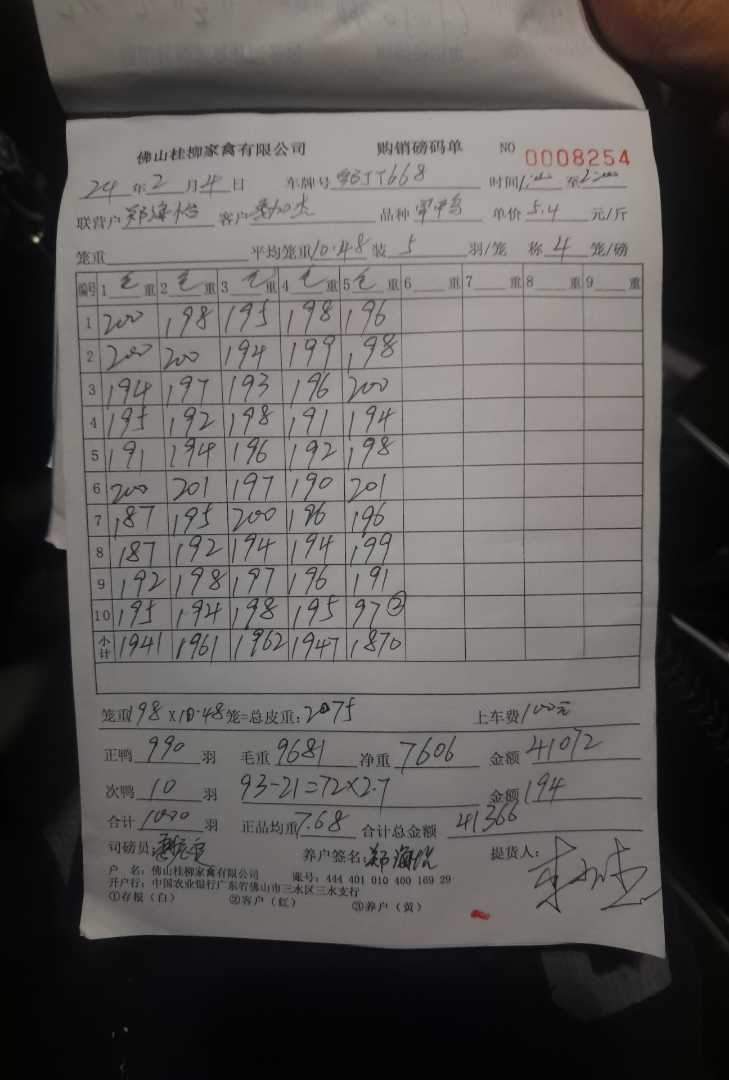 佛山桂柳家禽有限公司 购销磅码单 NO 0008254
24年2月4日 车牌号 JT668 时间1:00至2:00
联营户 郑海怡 客户 品种 单价5.4元/斤
笼重 平均笼重10.48装5羽/笼 称4笼/磅
编号 1毛重 2毛重 3毛重 4毛重 5毛重 6重 7重 8重 9重
1 200 198 195 198 196
2 200 200 194 199 198
3 194 197 193 196 200
4 195 192 198 191 194
5 191 194 196 192 198
6 200 201 197 190 201
7 187 195 200 196 196
8 187 192 194 194 199
9 192 198 197 196 191
10 195 194 198 195 97②
小计 1941 1961 1962 1947 1870
笼重198×10.48笼=总皮重:2075 上车费100元
正鸭990羽 毛重9681 净重7606 金额41072
次鸭10羽 93-21=72×2.7 金额194
合计1000羽 正品均重7.68 合计总金额41366
司磅员: 养户签名:郑海怡 提货人:
户 名:佛山桂柳家禽有限公司 账号:444 401 010 400 169 29
开户行:中国农业银行广东省佛山市三水区三水支行
①存根(白) ②客户(红) ③养户(黄)